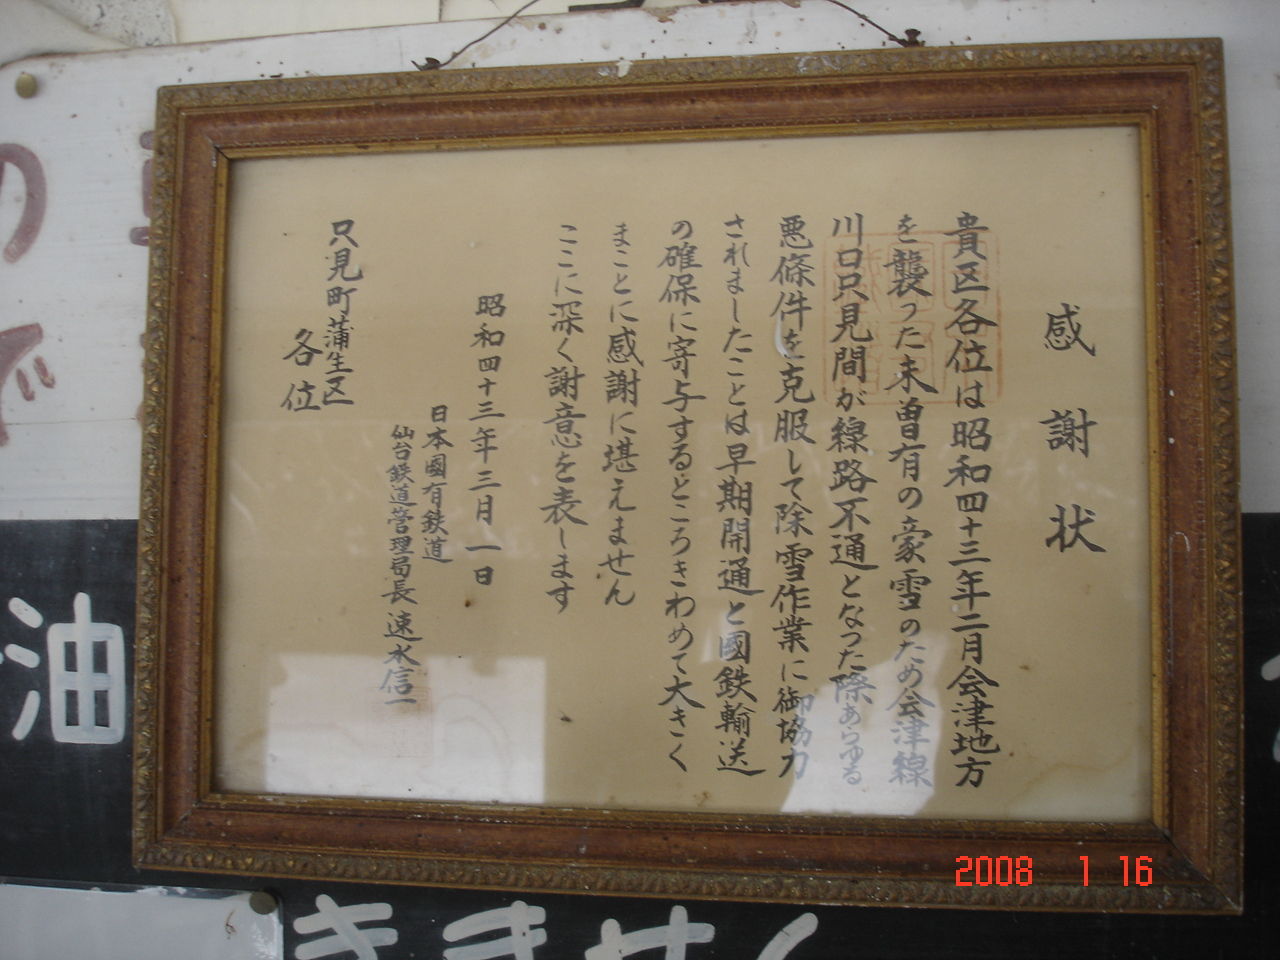 感謝状
貴区各位は昭和四十三年二月会津地方
を襲った未曽有の豪雪のため会津線
川口只見間が線路不通となった際あらゆる
悪條件を克服して除雪作業に御協力
されましたことは早期開通と國鉄輸送
の確保に寄与するところきわめて大きく
まことに感謝に堪えません
ここに深く謝意を表します
昭和四十三年三月一日
日本國有鉄道
仙台鉄道管理局長 速水信一
只見町蒲生区
各位
の
で
油
きません
2008 1 16